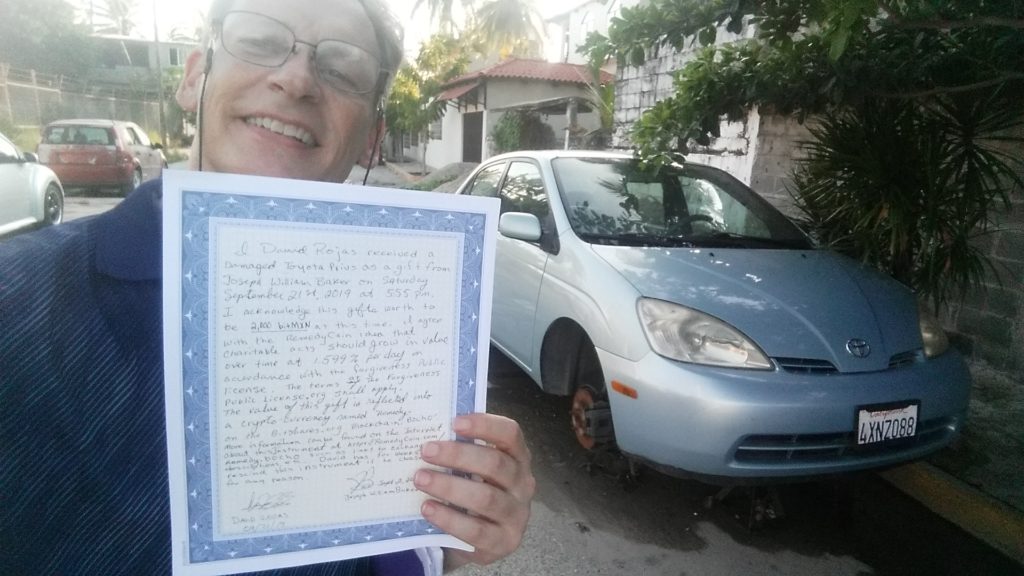 I David Rojas received a
Damaged Toyota Prius as a gift from
Joseph William Baker on Saturday
September 21st, 2019 at 5:55 pm.
I acknowledge this gift is worth to
be 2,000 bitMXN at this time. I agree
with the RemedyCoin idea that
charitable acts should grow in value
over time at 1.599% per day in
accordance with the Forgiveness Public
License. The terms of the Forgiveness
Public License.org shall apply.
The value of this gift is reflected into
a crypto currency named Remedy.
on the Bitshares.org Blockchain
More information can be found on the Internet
about this instrument at
David has
this instrument
for any reason.
Joseph William Baker
David Rojas
California
4XNZ088